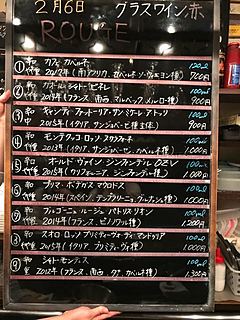 2月6日 グラスワイン赤
ROUGE
① 和 カフェ カベルネ 120ml
2017年(南アフリカ、カベルネ・ソーヴィニヨン種) 700円
② 和 100ml
2014年(フランス、南西 マルベック、メルロー種) 900円
③ 和 キャンティ ファットーリア・サンミケーレ 100ml
2015年(イタリア、サンジョベーゼ種主体) 900円
④ 和 モンテファルコ ロッソ 100ml
年(イタリア、サンジョベーゼ、 種) 1,000円
⑤ 和 オールド ヴァイン ジンファンデル OZV 100ml
2015年(カリフォルニア、ジンファンデル種) 1,000円
⑥ 和 プリマ・ボデガス マウロドス 100ml
2014年(スペイン、テンプラニーリョ、ガルナッチャ種) 1,000円
⑦ 和 ブルゴーニュ ルージュ パトリス リオン 100ml
2014年(フランス、ピノノワール種) 1,200円
⑧ 和 プリミティーヴォ・ディ・マンドゥリア 100ml
2015年(イタリア、プリミティーヴォ種) 1,000円
⑨ 和 シャトー・モンテュス 100ml
2012年(フランス、南西 タナ、カベルネ種) 1,300円